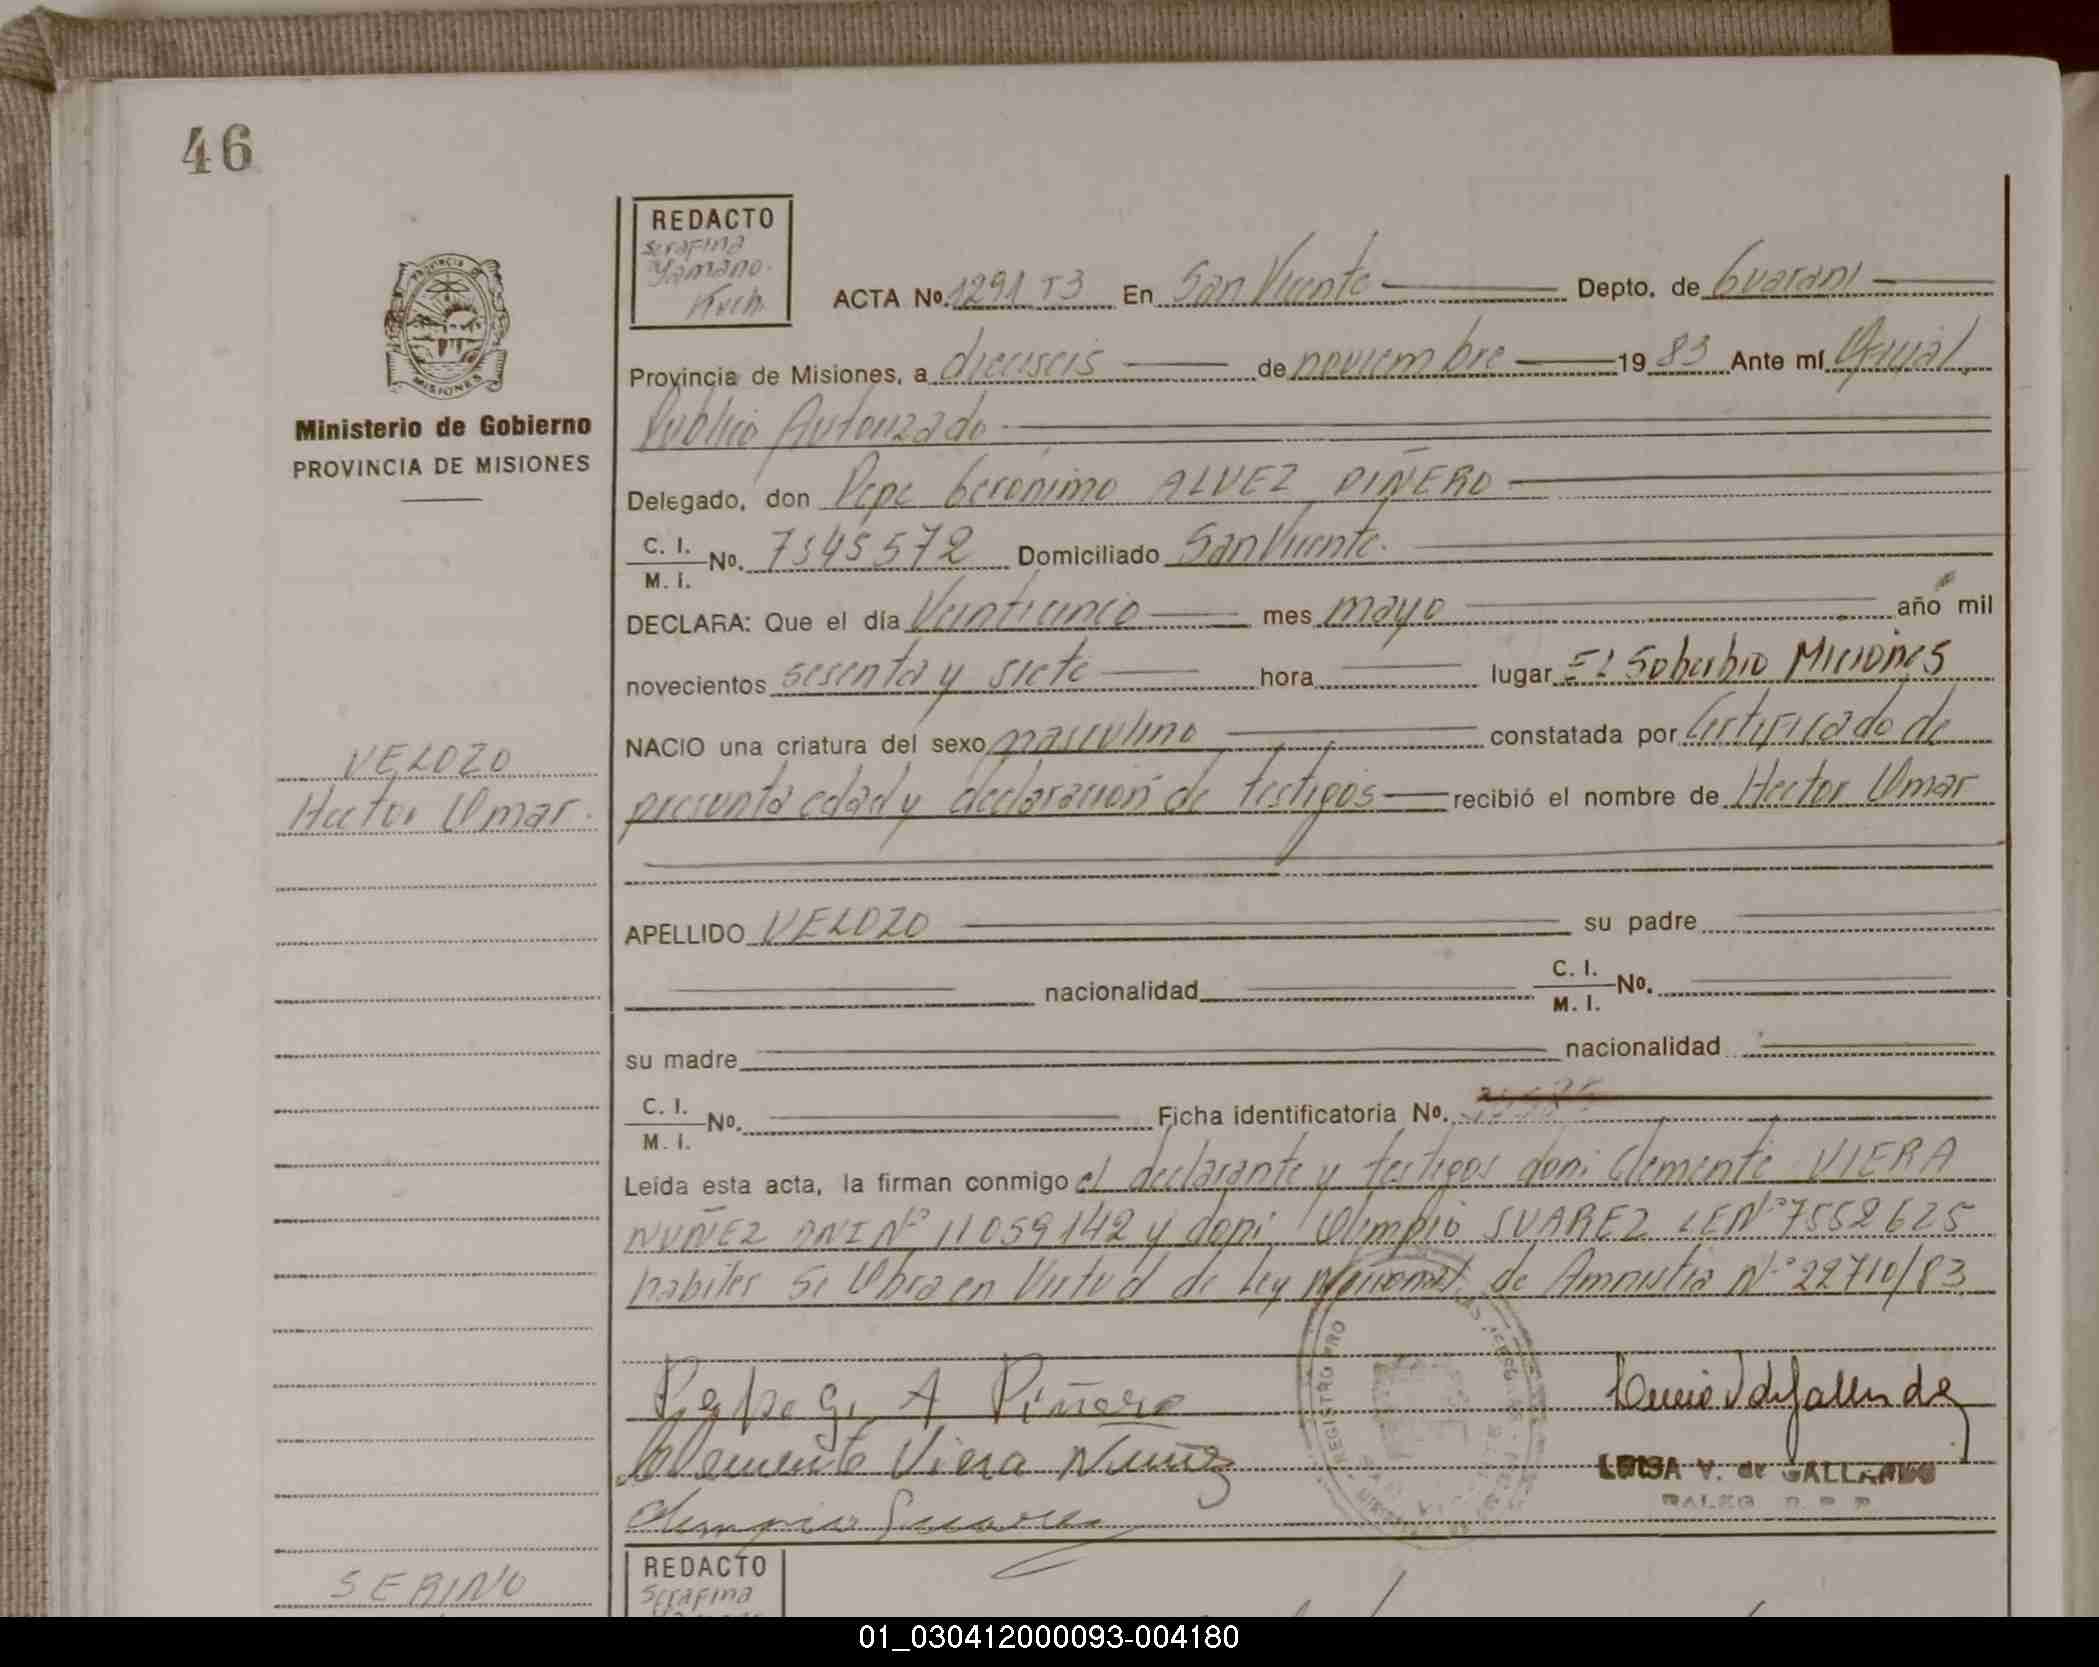 46
REDACTO
Serafina
Yamano.
Kuch.
PROVINCIA DE
MISIONES
Ministerio de Gobierno
PROVINCIA DE MISIONES
ACTA No. 1291 T3 En San Vicente Depto. de Guarani
Provincia de Misiones, a dieciseis de noviembre 19 83 Ante mí Oficial
Publico Autorizado
Delegado, don Pepe Geronimo ALVEZ PIÑERO
C. I. / M. I. No. 7545572 Domiciliado San Vicente.
DECLARA: Que el día Veinticinco mes mayo año mil
novecientos sesenta y siete hora lugar El Soberbio Misiones
NACIO una criatura del sexo masculino constatada por Certificado de
presunta edad y declaración de testigos recibió el nombre de Hector Omar
VELOZO
Hector Omar.
APELLIDO VELOZO su padre
nacionalidad C. I. / M. I. No.
su madre nacionalidad
C. I. / M. I. No. Ficha identificatoria No.
Leída esta acta, la firman conmigo el declarante y testigos don: Clemente VIERA
NUÑEZ DNI Nº 11059142 y don: Olimpio SUAREZ LE Nº 7552625
habiles Se Obra en Virtud de Ley Nacional de Amnistia Nº 22710/83
Pepe G. A Piñero
Clemente Viera Nuñez
Olimpio Suarez
REGISTRO PRO
LUISA V. de GALLARDO
SERINO
REDACTO
Serafina
01_030412000093-004180